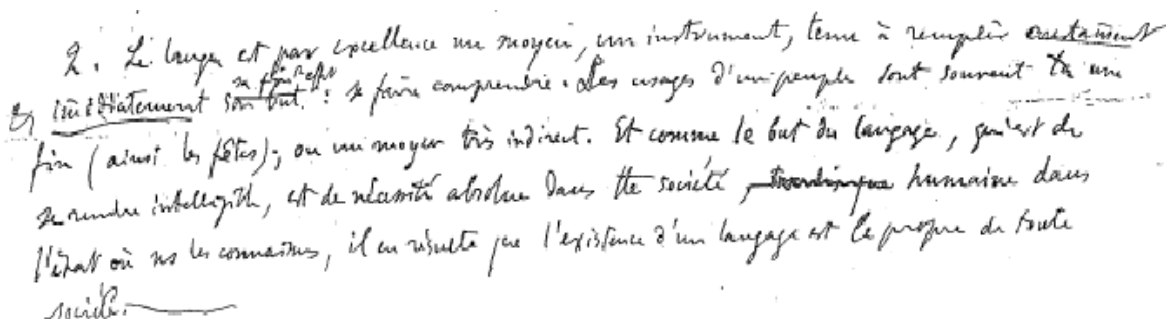 2. Le langage est par excellence un moyen, un instrument, tenu à remplir constamment
sa fin et effet
et immédiatement son but : se faire comprendre. Les usages d'un peuple sont souvent un
fin (ainsi les fêtes), ou un moyen très indirect. Et comme le but du langage, qui est de
se rendre intelligible, est de nécessité absolue dans tte société, humaine dans
l'état où ns les connaissons, il en résulte que l'existence d'un langage est le propre de toute
société.